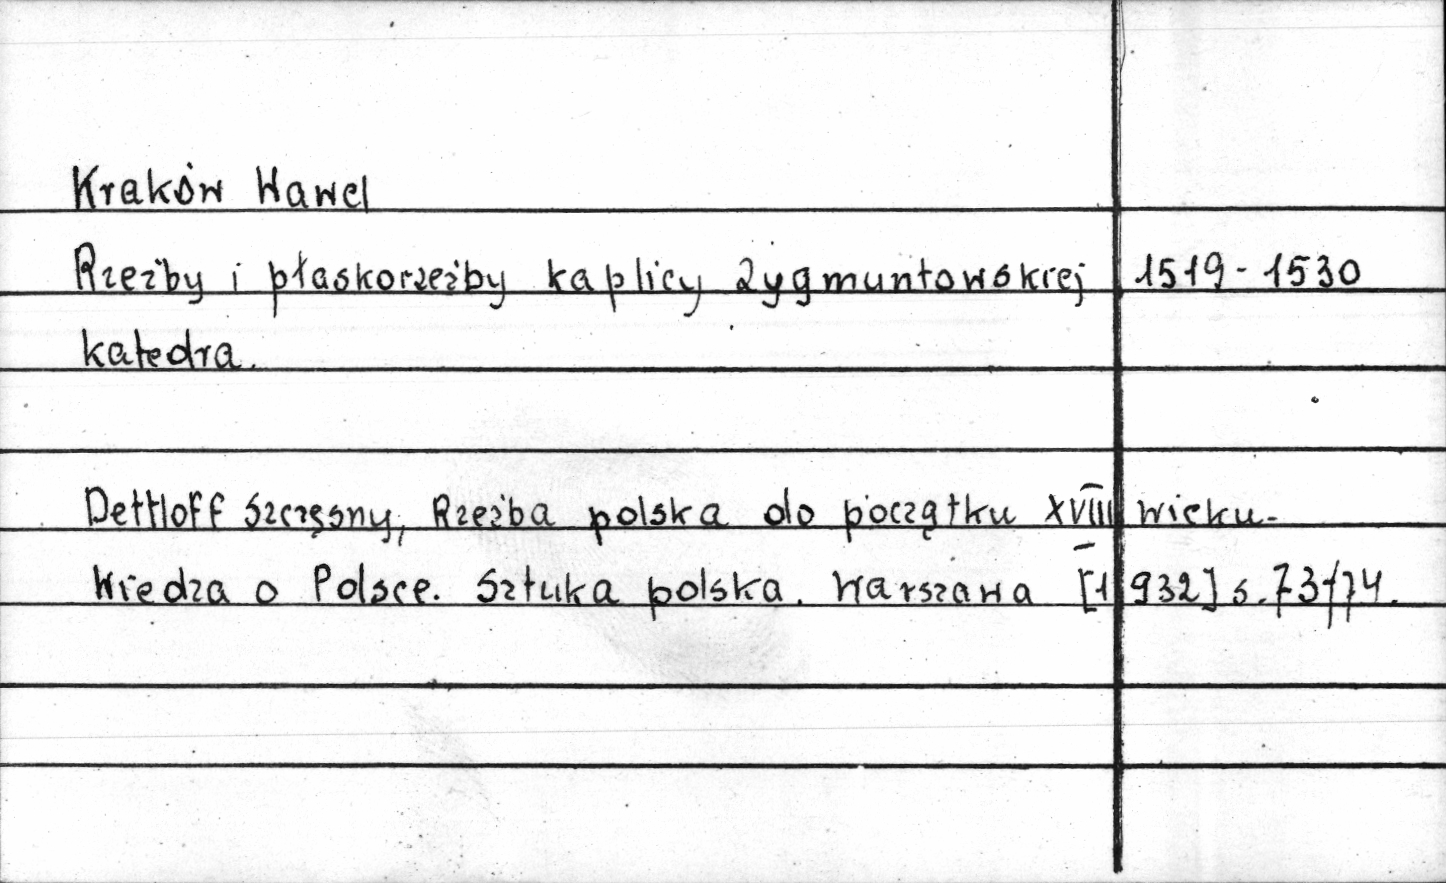 Kraków Wawel
Rzeźby i płaskorzeźby kaplicy Zygmuntowskiej 1519-1530
katedra.
Dettloff Szczęsny, Rzeźba polska do początku XVIII wieku.
Wiedza o Polsce. Sztuka polska. Warszawa [1932] s. 73/74.